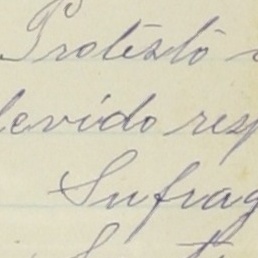 Protéstó
devido resp
Sufrag